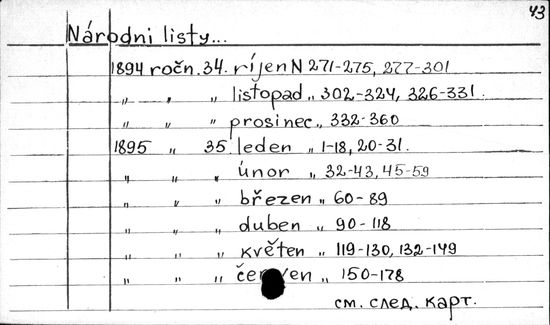 43
Národni listy...
1894 ročn. 34. ríjen N 271-275, 277-301
„ „ „ listopad „ 302-324, 326-331.
„ „ „ prosinec „ 332-360
1895 „ 35. leden „ 1-18, 20-31.
„ „ „ únor „ 32-43, 45-59
„ „ „ březen „ 60-89
„ „ „ duben „ 90-118
„ „ „ květen „ 119-130, 132-149
„ „ „ „ 150-178
см. след. карт.